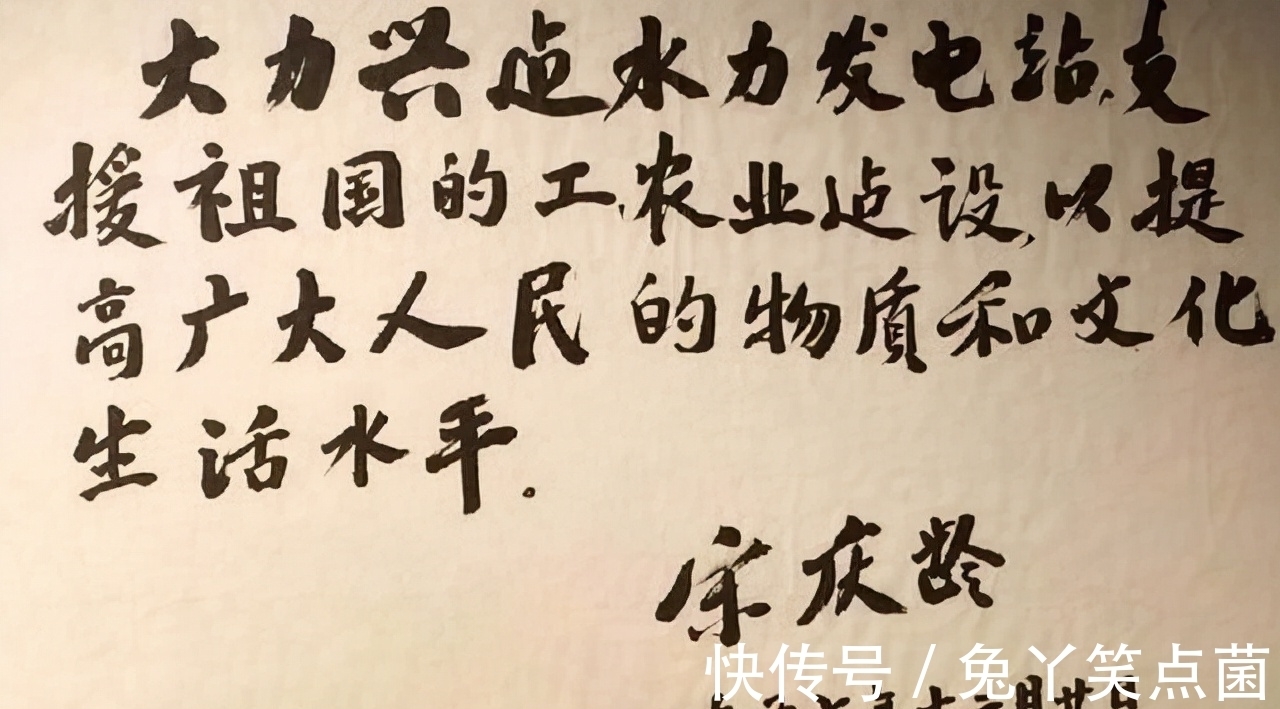 大力兴迠水力发电站,支
援祖国的工、农业迠设,以提
高广大人民的物质和文化
生活水平。
宋庆龄
快传号 / 兔丫笑点菌